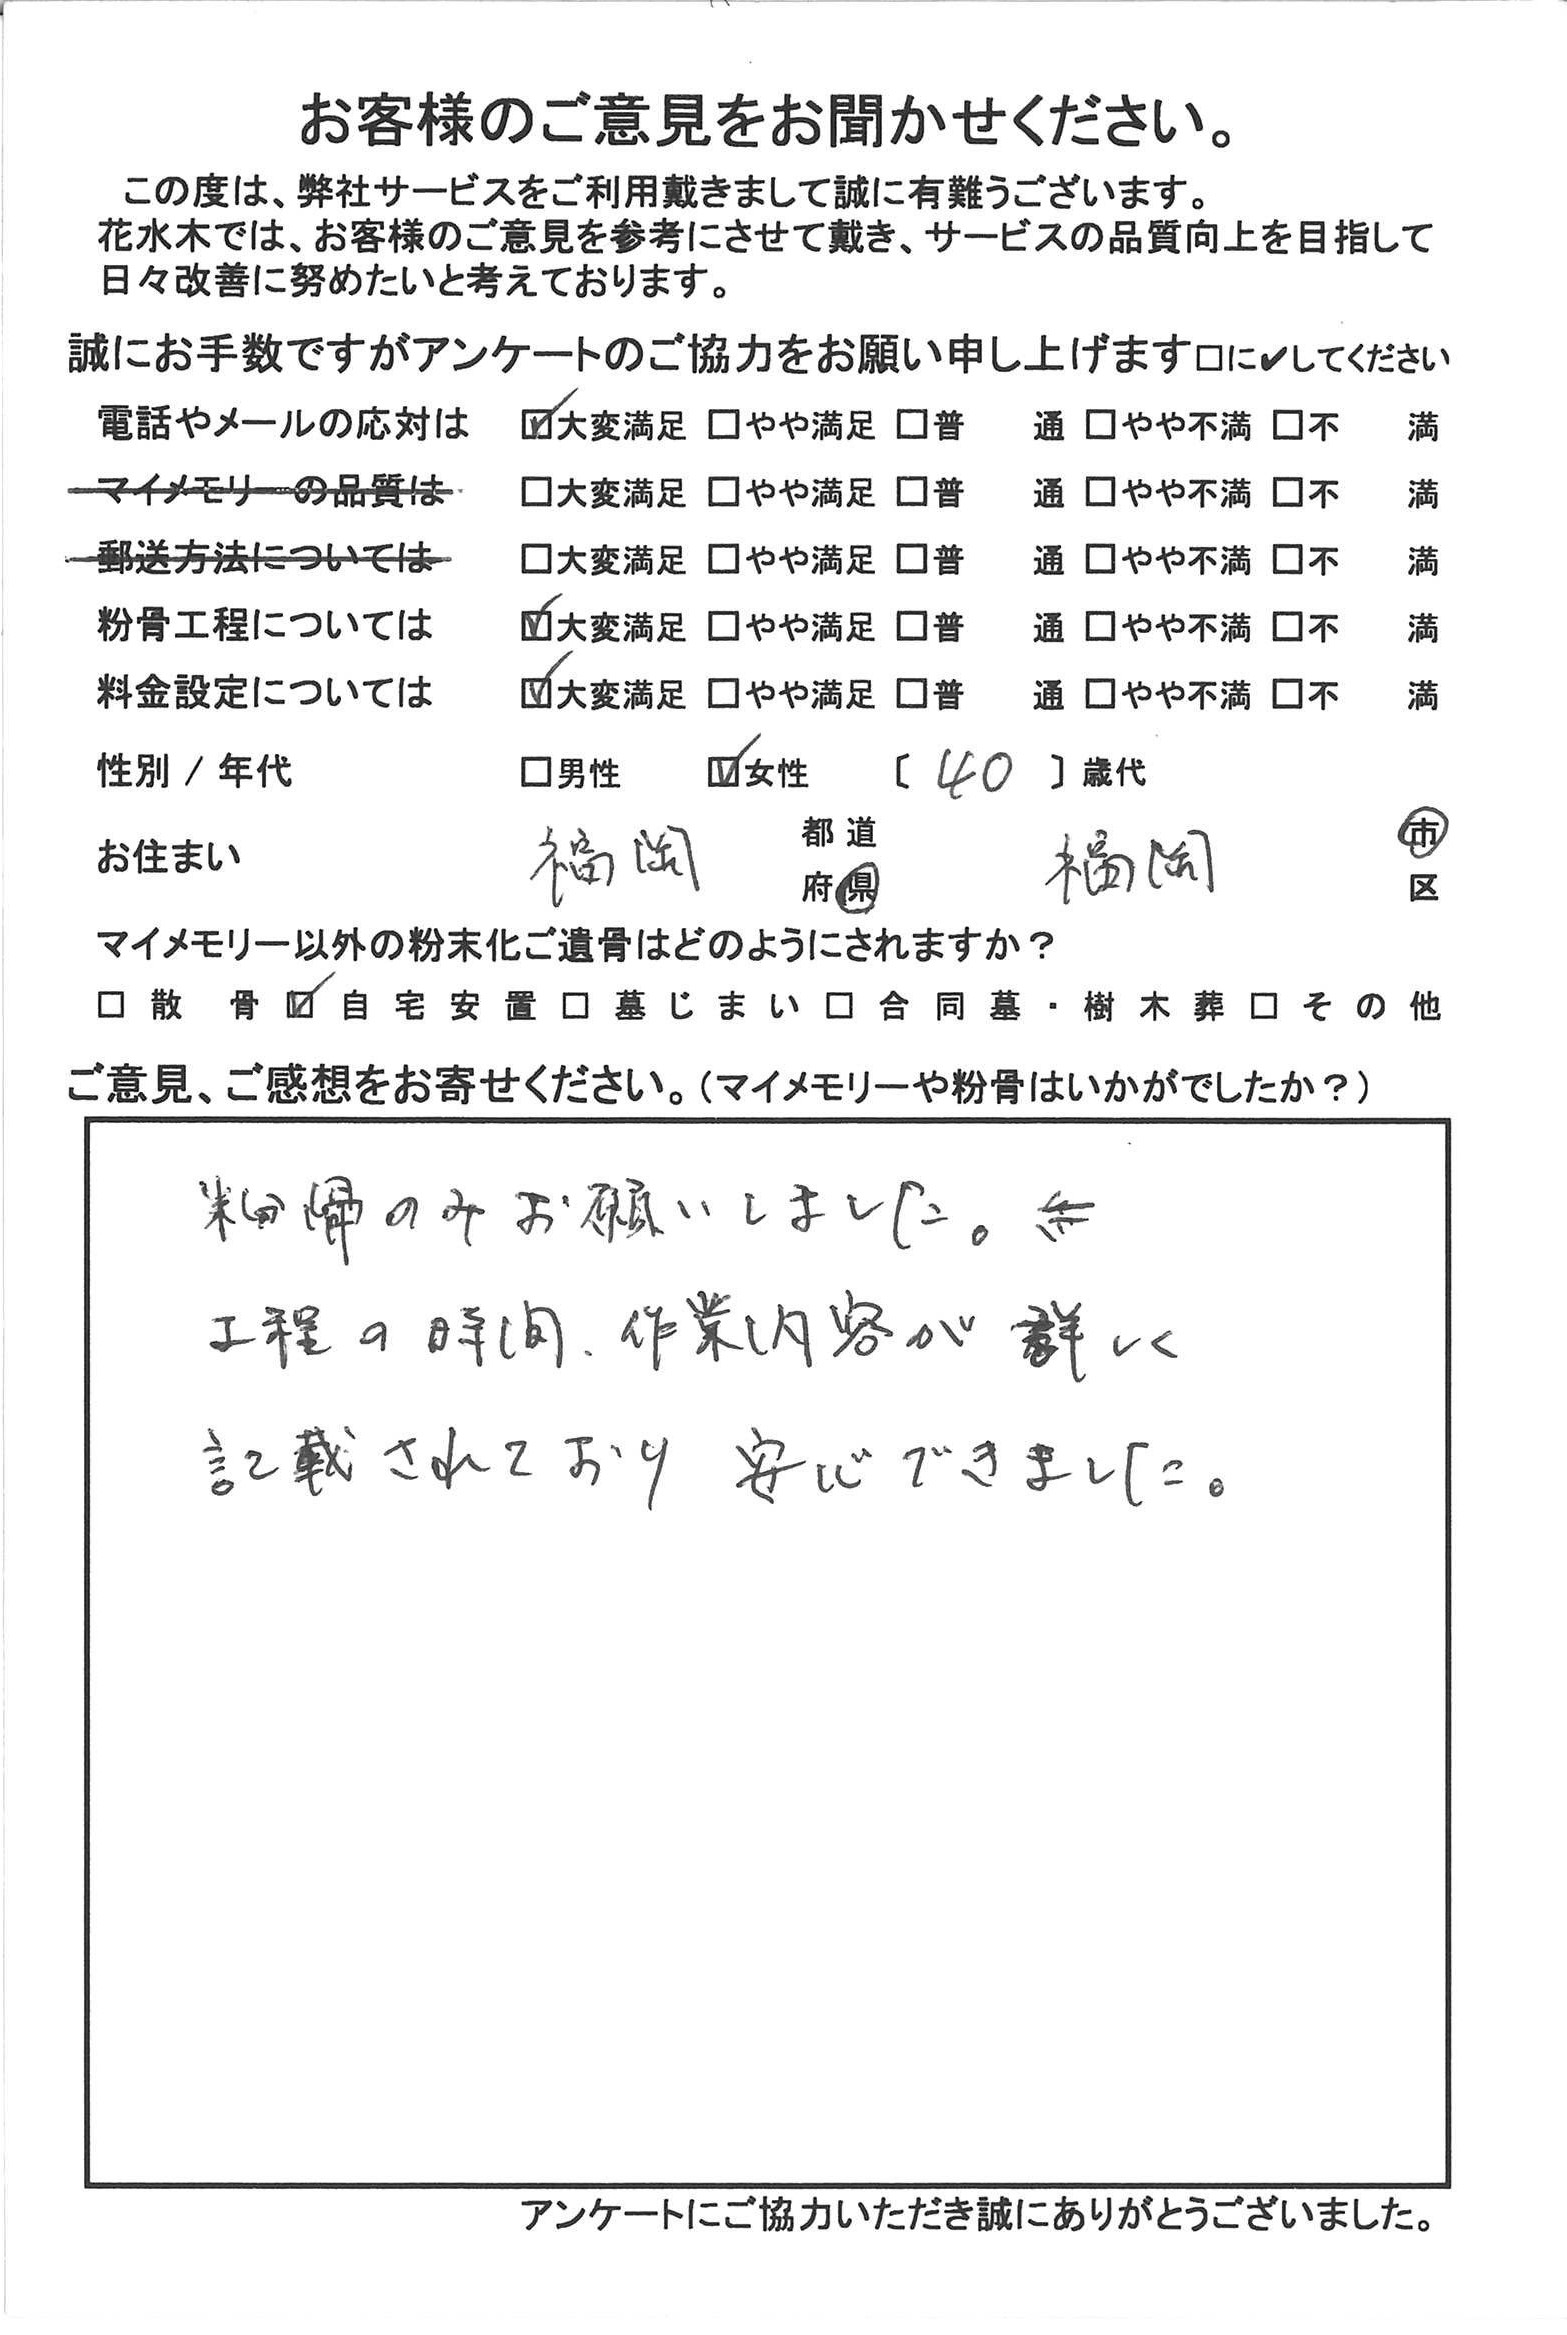 お客様のご意見をお聞かせください。
この度は、弊社サービスをご利用戴きまして誠に有難うございます。
花水木では、お客様のご意見を参考にさせて戴き、サービスの品質向上を目指して
日々改善に努めたいと考えております。
誠にお手数ですがアンケートのご協力をお願い申し上げます□に✔してください
電話やメールの応対は ☑大変満足 □やや満足 □普 通 □やや不満 □不 満
マイメモリーの品質は □大変満足 □やや満足 □普 通 □やや不満 □不 満
郵送方法については □大変満足 □やや満足 □普 通 □やや不満 □不 満
粉骨工程については ☑大変満足 □やや満足 □普 通 □やや不満 □不 満
料金設定については ☑大変満足 □やや満足 □普 通 □やや不満 □不 満
性別 / 年代 □男性 ☑女性 〔 40 〕歳代
お住まい 福岡 都道府県 福岡 市区
マイメモリー以外の粉末化ご遺骨はどのようにされますか?
□散 骨 ☑自宅安置 □墓じまい □合同墓・樹木葬 □その他
ご意見、ご感想をお寄せください。(マイメモリーや粉骨はいかがでしたか?)
粉骨のみお願いしました。
工程の時間、作業内容が詳しく
記載されており安心できました。
アンケートにご協力いただき誠にありがとうございました。